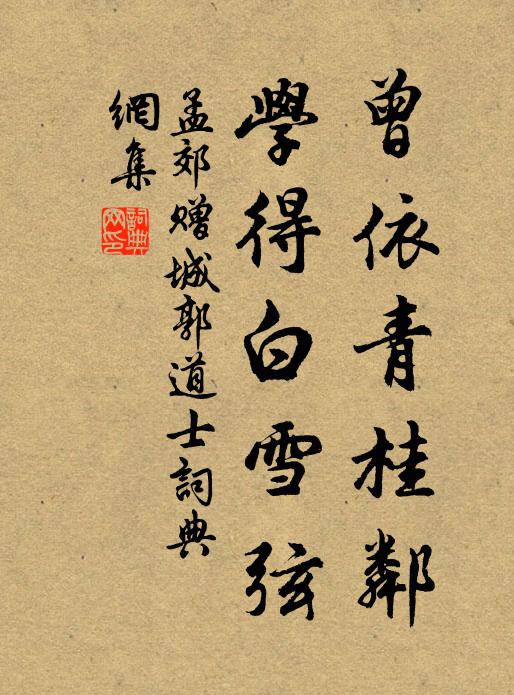 曾依青桂鄰
學得白雪弦
孟郊贈城郭道士詞典
網集
詞典
网印